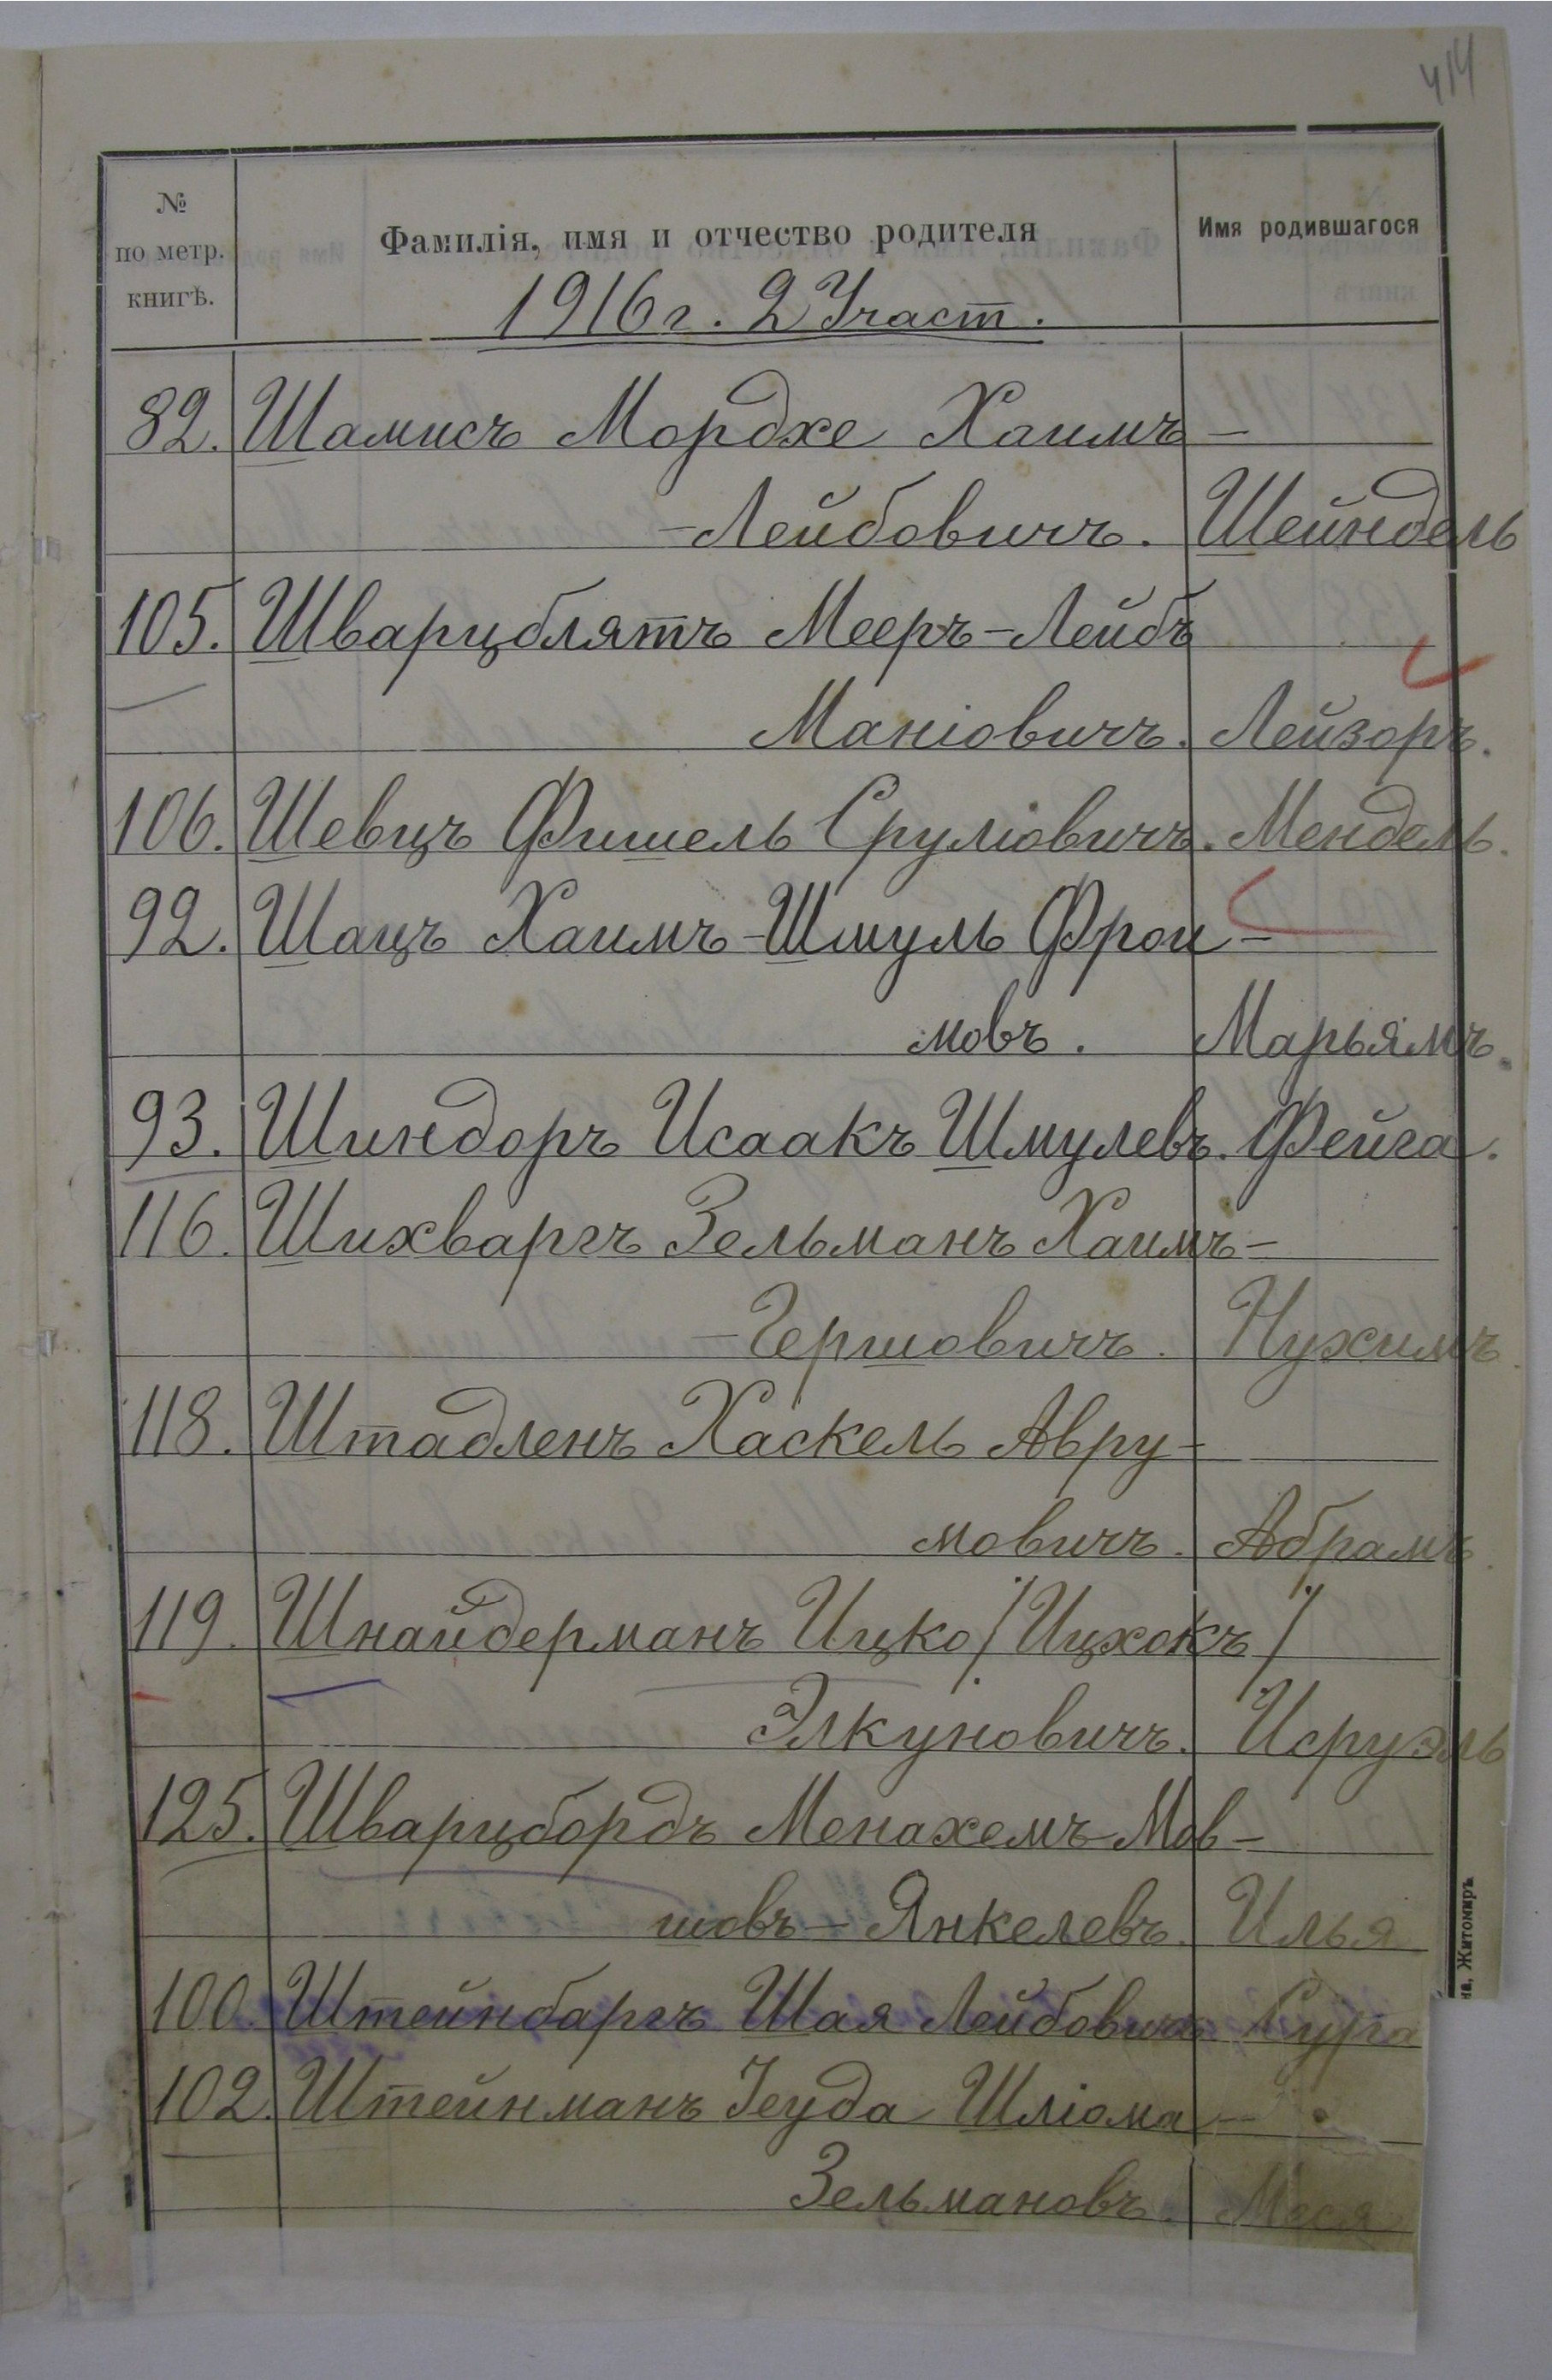 414
№
по метр.
книгѣ.
Фамилія, имя и отчество родителя
Имя родившагося
1916 г. 2 Участ.
82. Шамисъ Мордхе Хаимъ-
-Лейбовичъ. Шейндель
105. Шварцблятъ Мееръ-Лейбъ
Маніовичъ. Лейзоръ.
106. Шевцъ Фишель Сруліовичъ. Мендель.
92. Шацъ Хаимъ-Шмуль Фрои-
мовъ. Марьямъ.
93. Шиндоръ Исаакъ Шмулевъ. Фейга.
116. Шихваргъ Зельманъ Хаимъ-
-Гершовичъ. Нухимъ.
118. Штадленъ Хаскель Авру-
мовичъ. Абрамъ.
119. Шнайдерманъ Ицко /Ицхокъ/
Элкуновичъ. Исруэль
125. Шварцбордъ Менахемъ-Мов-
шовъ-Янкелевъ. Илья
100. Штейнбаргъ Шая Лейбовичъ Сура
102. Штейнманъ Іеуда Шліома-
Зельмановъ.
на, Житомиръ